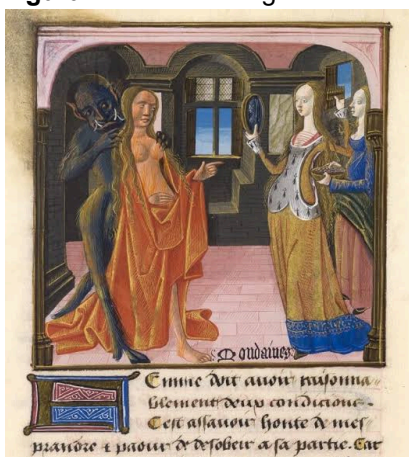 Mondaines
Femme doit avoir raisonna
blement deux condicions.
Cest assavoir honte de mes
prandre ⁊ paour de desobeir a sa partie. Car